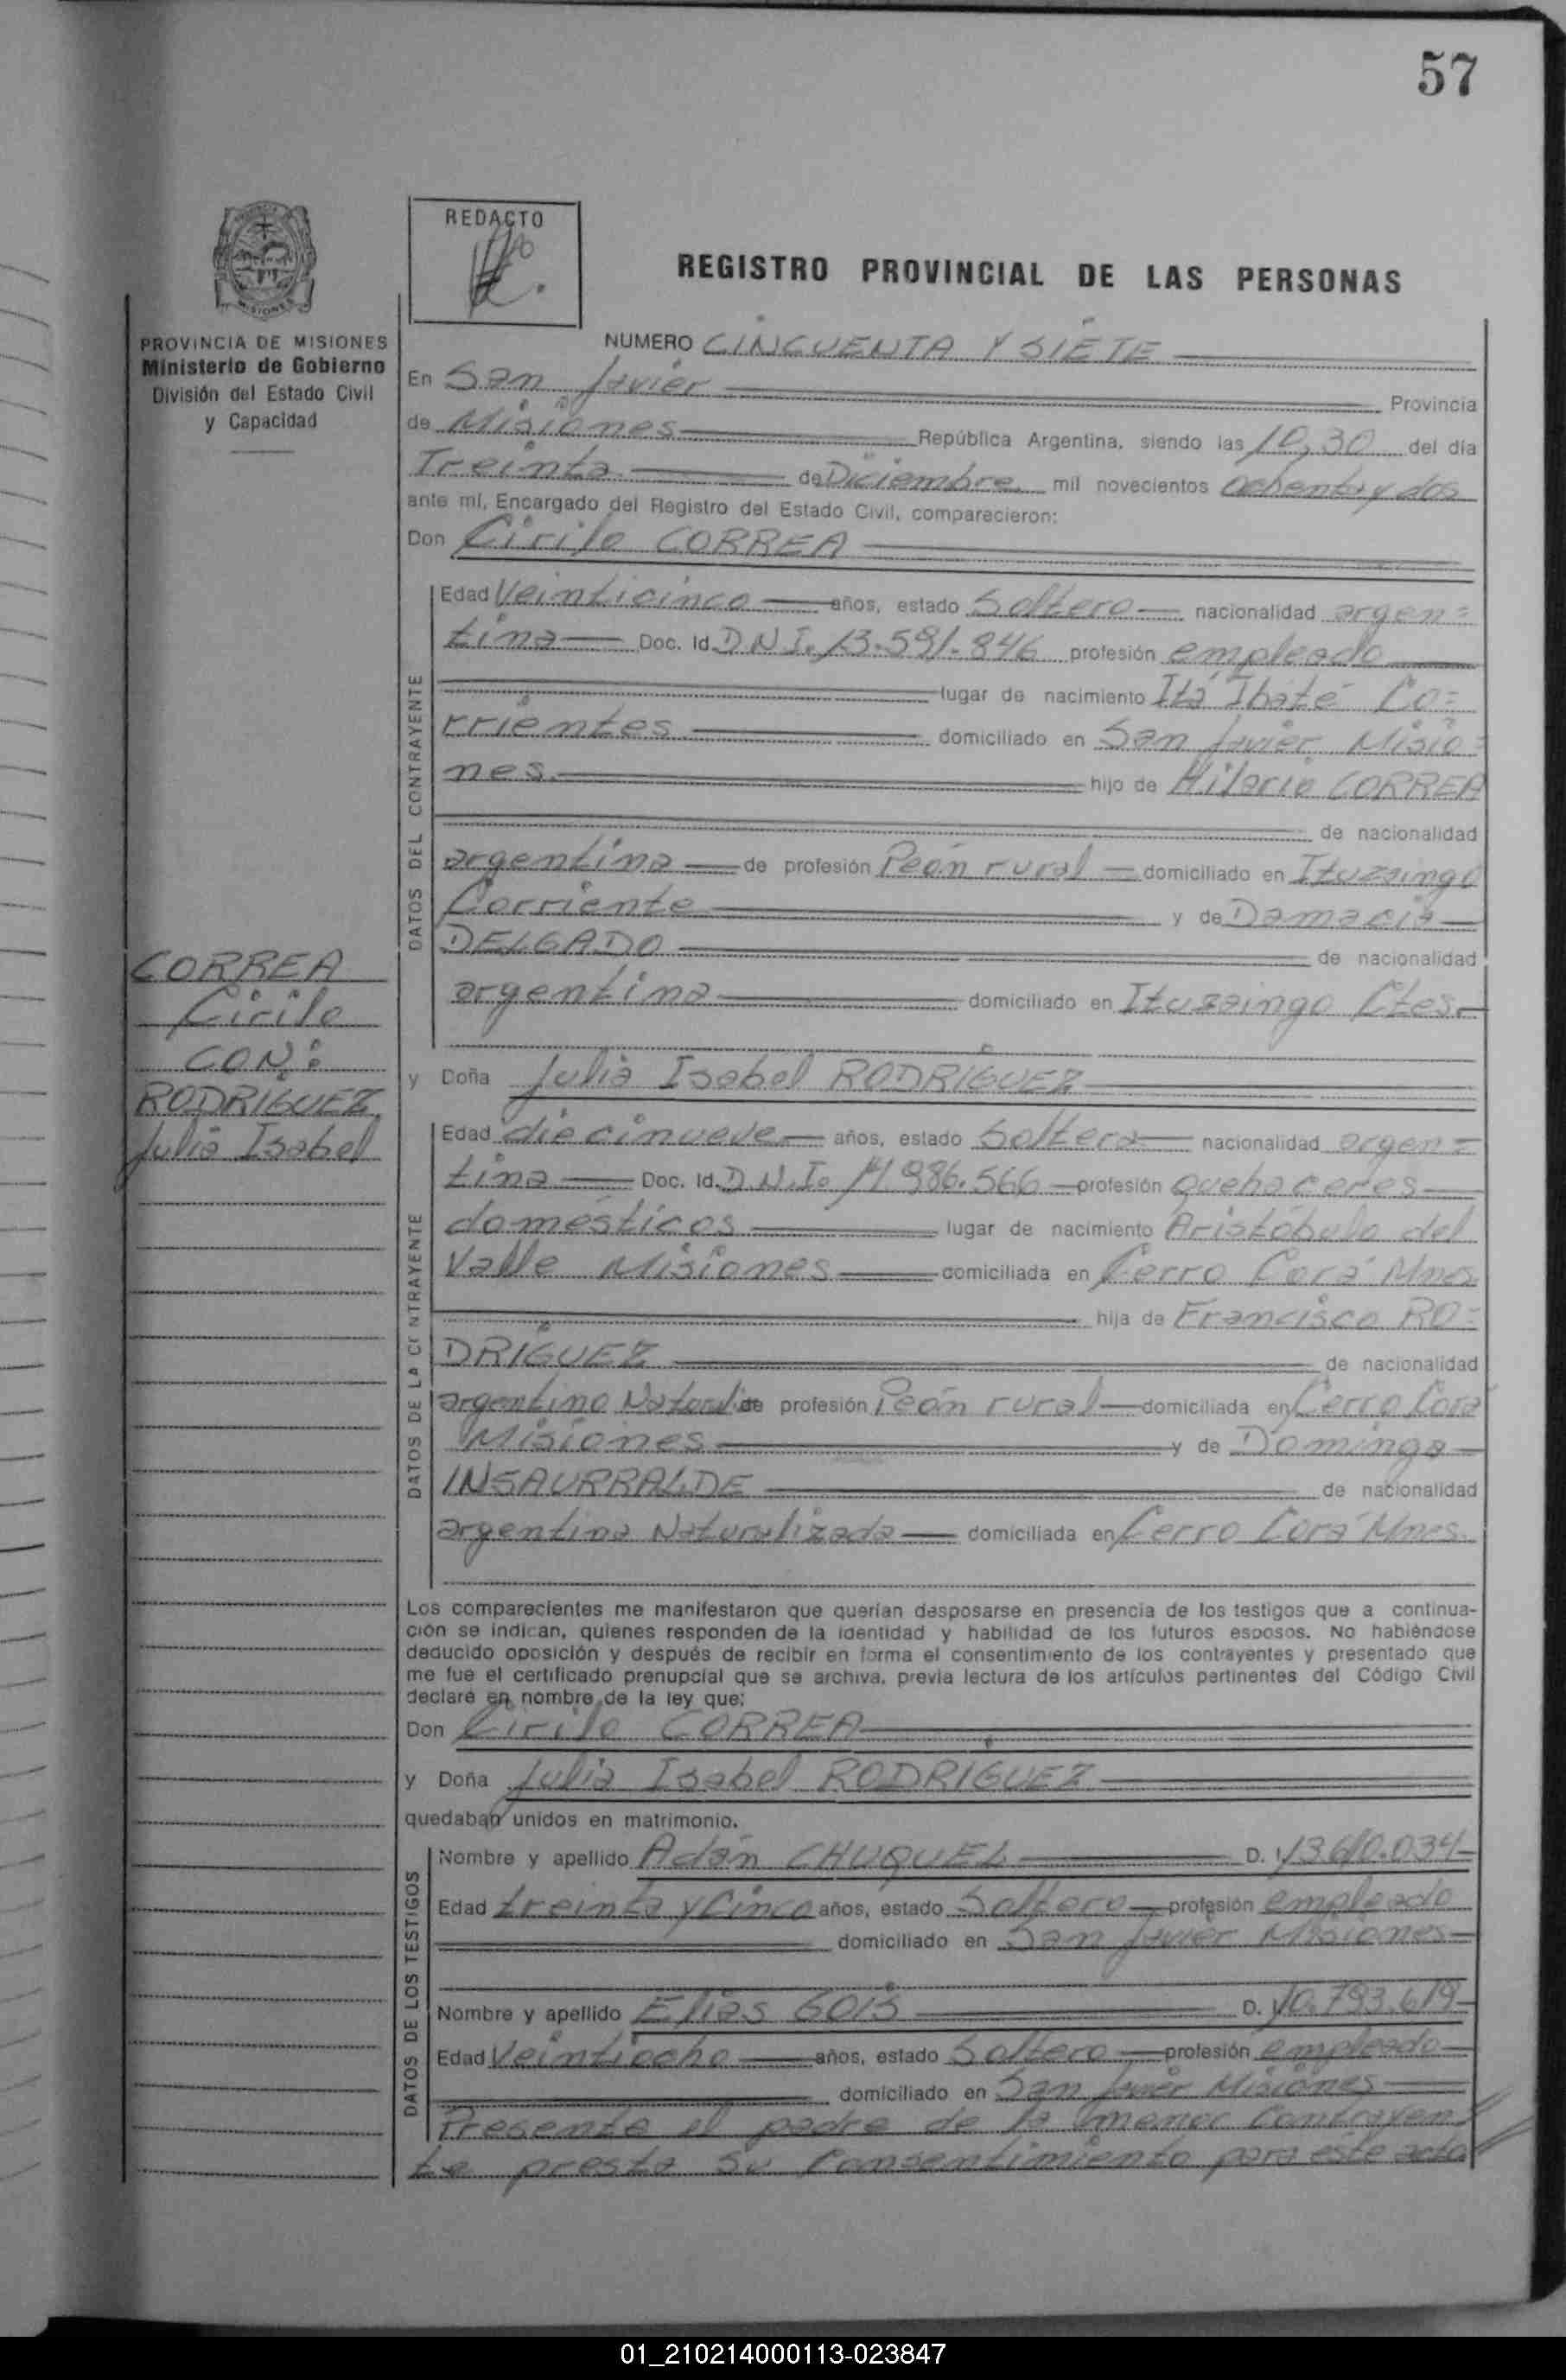 57
REDACTO
REGISTRO PROVINCIAL DE LAS PERSONAS
MISIONES
PROVINCIA DE MISIONES
Ministerio de Gobierno
División del Estado Civil
y Capacidad
NUMERO CINCUENTA Y SIETE
En San Javier Provincia
de Misiones República Argentina, siendo las 10,30 del día
Treinta de Diciembre mil novecientos ochenta y dos
ante mí, Encargado del Registro del Estado Civil, comparecieron:
Don Cirilo CORREA
DATOS DEL CONTRAYENTE
Edad Veinticinco años, estado Soltero nacionalidad argen=
tina Doc. Id. D.N.I. 13.591.846 profesión empleado
lugar de nacimiento Itá Ibaté Co=
rrientes domiciliado en San Javier Misio=
nes. hijo de Hilario CORREA
de nacionalidad
argentina de profesión Peón rural domiciliado en Ituzaingó
Corriente y de Damacia
DELGADO de nacionalidad
argentina domiciliado en Ituzaingo Ctes.
CORREA
Cirilo
CON:
RODRIGUEZ,
Julia Isabel
y Doña Julia Isabel RODRIGUEZ
DATOS DE LA CONTRAYENTE
Edad diecinueve años, estado Soltera nacionalidad argen=
tina Doc. Id. D.N.I. 14.986.566 profesión quehaceres
domésticos lugar de nacimiento Aristóbulo del
Valle Misiones domiciliada en Cerro Corá Mnes.
hija de Francisco RO=
DRIGUEZ de nacionalidad
argentino de profesión Peón rural domiciliada en Cerro Corá
Misiones y de Dominga
INSAURRALDE de nacionalidad
argentina Naturalizada domiciliada en Cerro Corá Mnes.
Los comparecientes me manifestaron que querían desposarse en presencia de los testigos que a continua-
ción se indican, quienes responden de la identidad y habilidad de los futuros esposos. No habiéndose
deducido oposición y después de recibir en forma el consentimiento de los contrayentes y presentado que
me fue el certificado prenupcial que se archiva, previa lectura de los artículos pertinentes del Código Civil
declaré en nombre de la ley que:
Don Cirilo CORREA
y Doña Julia Isabel RODRIGUEZ
quedaban unidos en matrimonio.
DATOS DE LOS TESTIGOS
Nombre y apellido Adán CHUQUEL D. I. 13.610.034
Edad treinta y Cinco años, estado Soltero profesión empleado
domiciliado en San Javier Misiones
Nombre y apellido Elias GOIS D. 10.793.619
Edad Veintiocho años, estado Soltero profesión empleado
domiciliado en San Javier Misiones
Presente el padre de la menor Contrayen
te presta su Consentimiento para este acto
01_210214000113-023847